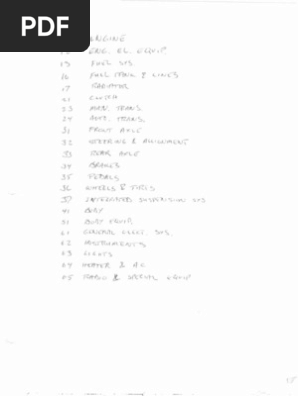 PDF
ENGINE
ENG. EL. EQUIP.
13 FUEL SYS
16 FUEL TANK & LINES
17 RADIATOR
21 CLUTCH
23 MAN. TRANS
24 AUT. TRANS.
31 FRONT AXLE
32 STEERING & ALIGNMENT
33 REAR AXLE
34 BRAKES
35 PEDALS
36 WHEELS & TIRES
37 INTEGRATED SUSPENSION SYS
41 BODY
51 BODY EQUIP.
61 GENERAL ELEC. SYS.
62 INSTRUMENTS
63 LIGHTS
64 HEATER & AC
65 RADIO & SPECIAL EQUIP